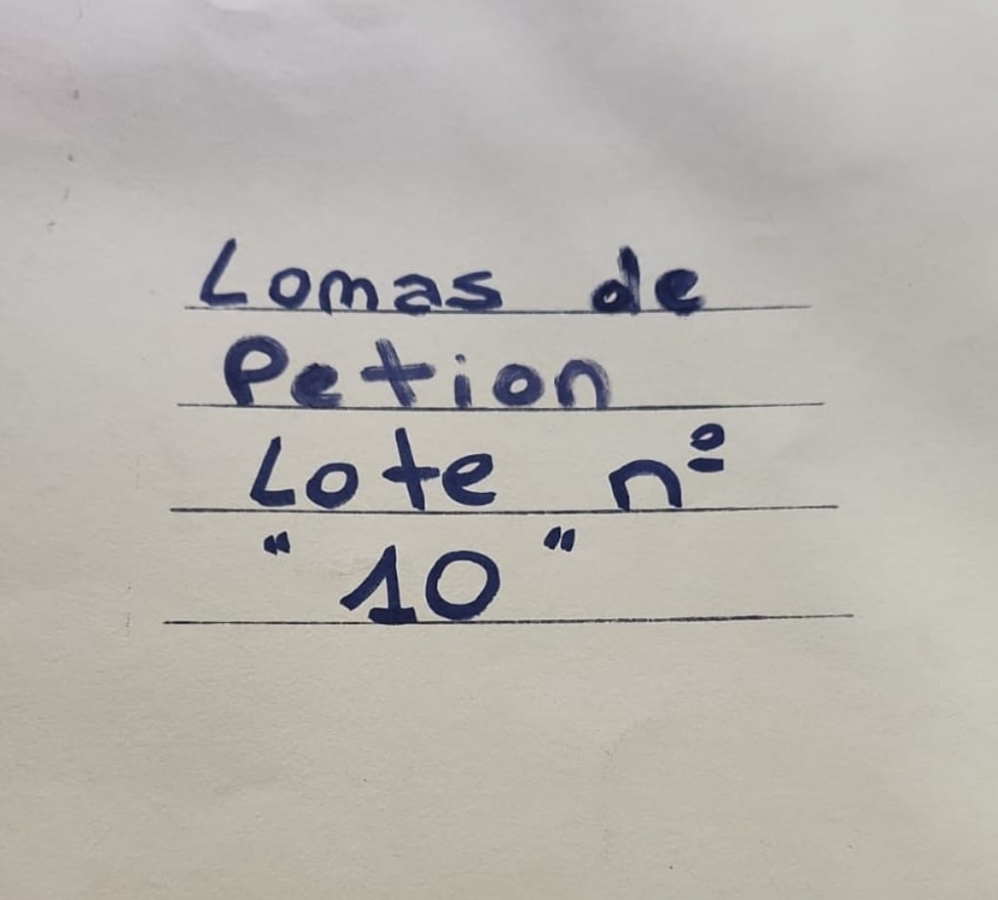 Lomas de
Petion
Lote nº
"10"